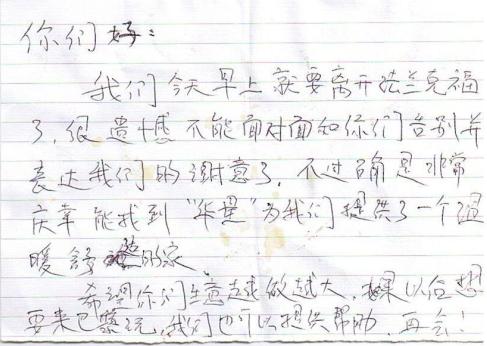 你们好：
我们今天早上就要离开法兰克福
了，很遗憾不能面对面和你们告别并
表达我们的谢意了，不过确是非常
庆幸能找到“华星”为我们提供了一个温
暖舒适的家。
希望你们生意越做越大，如果以后想
要来巴黎玩，我们也可以提供帮助，再会！